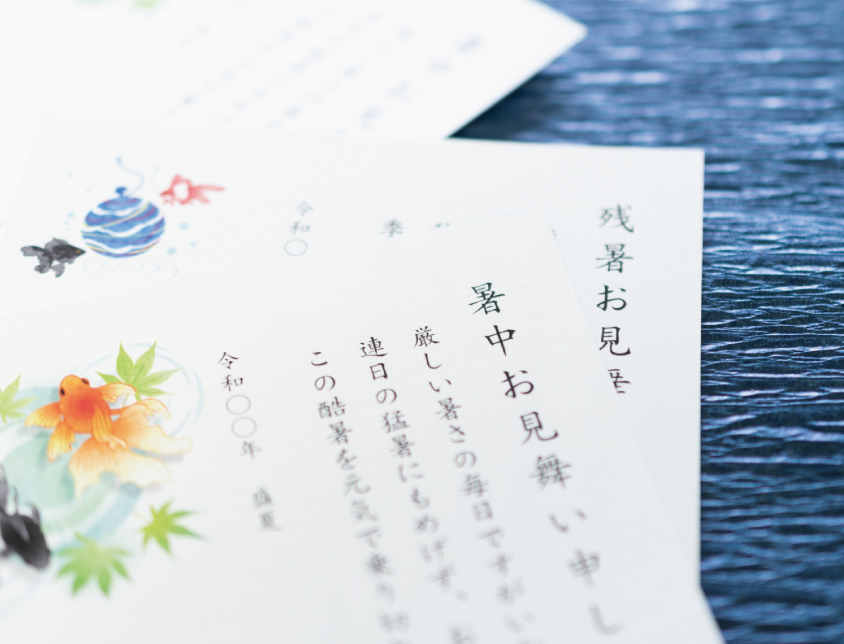 暑中お見舞い申し
厳しい暑さの毎日ですがい
連日の猛暑にもめげず、お
この酷暑を元気で乗り切
令和〇〇年 盛夏
残暑お見
季
令和〇